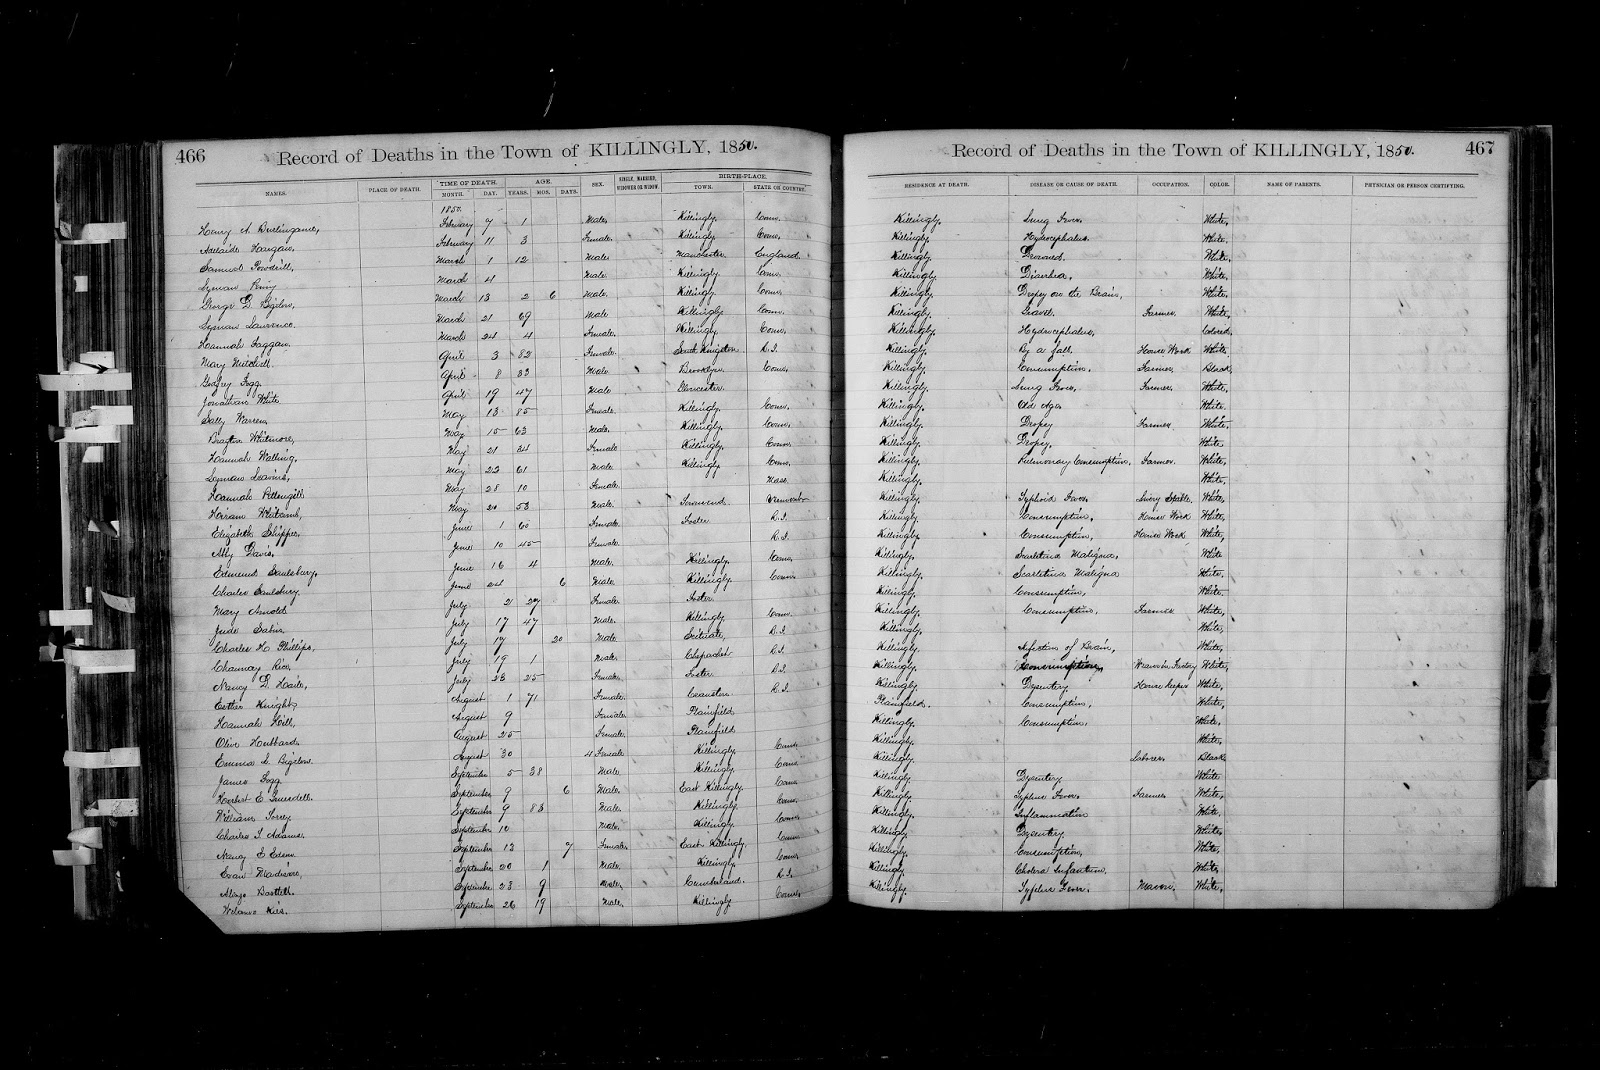 466
Record of Deaths in the Town of KILLINGLY, 1850.
NAMES. PLACE OF DEATH. TIME OF DEATH. AGE. SEX. SINGLE, MARRIED, WIDOWER OR WIDOW. BIRTH-PLACE.
MONTH. DAY. YEARS. MON. DAYS. TOWN. STATE OR COUNTRY.
1850.
Henry A. Burlingame, February 7 1 Male, Killingly Conn.
Adelaide February 11 3 Female. Killingly Conn.
Samuel March 1 12 Male Manchester England
Lyman March 4 Male. Killingly Conn.
George D. Bigelow, March 13 2 6 Male. Killingly Conn.
Lyman Lawrence. March 21 69 Male Killingly Conn.
Hannah March 24 4 Female. Killingly Conn.
Mary Mitchell. April 3 82 Female. South Kingston R.I.
Godfrey Fogg. April 8 33 Male Brooklyn Conn.
Jonathan White April 19 47 Male Glocester.
Sally Warren, May 13 85 Female. Killingly. Conn.
Brayton Whitmore, May 15 63 Male. Killingly. Conn.
Hannah Walling, May 21 34 Female Killingly. Conn.
Lyman Leavins, May 23 61 Male. Killingly Conn.
Hannah Pettengill May 28 10 Female. Mass.
Hiram Whitcomb, May 20 53 Male. Townsend. Vermont
Elizabeth June 1 60 Female. Foster R.I.
Abby Davis, June 10 45 Female. R.I.
Edmund Saulsbury, June 16 4 Male. Killingly. Conn,
Charles Saulsbury June 24 6 Male. Killingly Conn.
Mary Arnold July 2 27 Female. Foster.
Jude Sabin July 17 47 Male. Killingly Conn.
Charles H. Phillips, July 17 20 Male. Scituate, R.I.
Chauncy Rice, July 19 1 Male. Chepachet R.I.
Nancy D. July 23 25 Female. Foster R.I.
Esther Knight August 1 71 Female. Cranston R.I.
Hannah Hill, August 9 Female. Plainfield
Olive Hubbard. August 25 Female. Plainfield
Emma L. Bigelow. August 30 4 Female. Killingly. Conn.
James Fogg September 5 38 Male. Killingly. Conn
Herbert E. Truesdell. September 9 6 Male. East Killingly. Conn.
William Torrey September 9 83 Male. Killingly Conn.
Charles Adams. September 10 Male. Killingly Conn.
Nancy E. September 13 7 Female. East Killingly. Conn.
Evan September 20 1 Male. Killingly. Conn.
Alonzo Bartlett. September 23 9 Male. Cumberland. R.I.
September 26 19 Male. Killingly Conn.
467
Record of Deaths in the Town of KILLINGLY, 1850.
RESIDENCE AT DEATH. DISEASE OR CAUSE OF DEATH. OCCUPATION. COLOR. NAME OF PARENTS. PHYSICIAN OR PERSON CERTIFYING.
Killingly. Lung Fever. White,
Killingly. Hydrocephalus. White.
Killingly. Drowned. White.
Killingly Diarrhea, White.
Killingly. Dropsy on the Brain, White.
Killingly. Gravel. Farmer. White,
Killingly. Hydrocephalus, Colored,
Killingly. By a fall. House Work White,
Killingly. Consumption, Farmer. Black.
Killingly. Lung Fever, Farmer, White,
Killingly. Old Age. White.
Killingly. Dropsy Farmer White,
Killingly. Dropsy. White,
Killingly. Pulmonary Consumption, Farmer. White,
Killingly. White,
Killingly Typhoid Fever. Livery Stable. White,
Killingly Consumption, House Work White,
Killingly. Consumption, House Work White,
Killingly. Scarletina Maligna, White
Killingly. Scarletina Maligna White.
Killingly. Consumption, White.
Killingly. Consumption, Farmer White,
Killingly. White,
Killingly. Affection of Brain, White,
Killingly. Consumption, Weaver in Factory White,
Killingly. Dysentery House keeper White,
Plainfield. Consumption, White,
Killingly. Consumption, White,
Killingly. White,
Killingly. Laborer Black
Killingly Dysentery White
Killingly. Typhus Fever. Farmer White,
Killingly. Inflammation White,
Killingly Dysentery White,
Killingly. Consumption, White,
Killingly. Cholera Infantum, White,
Killingly. Typhus Fever. Mason. White,